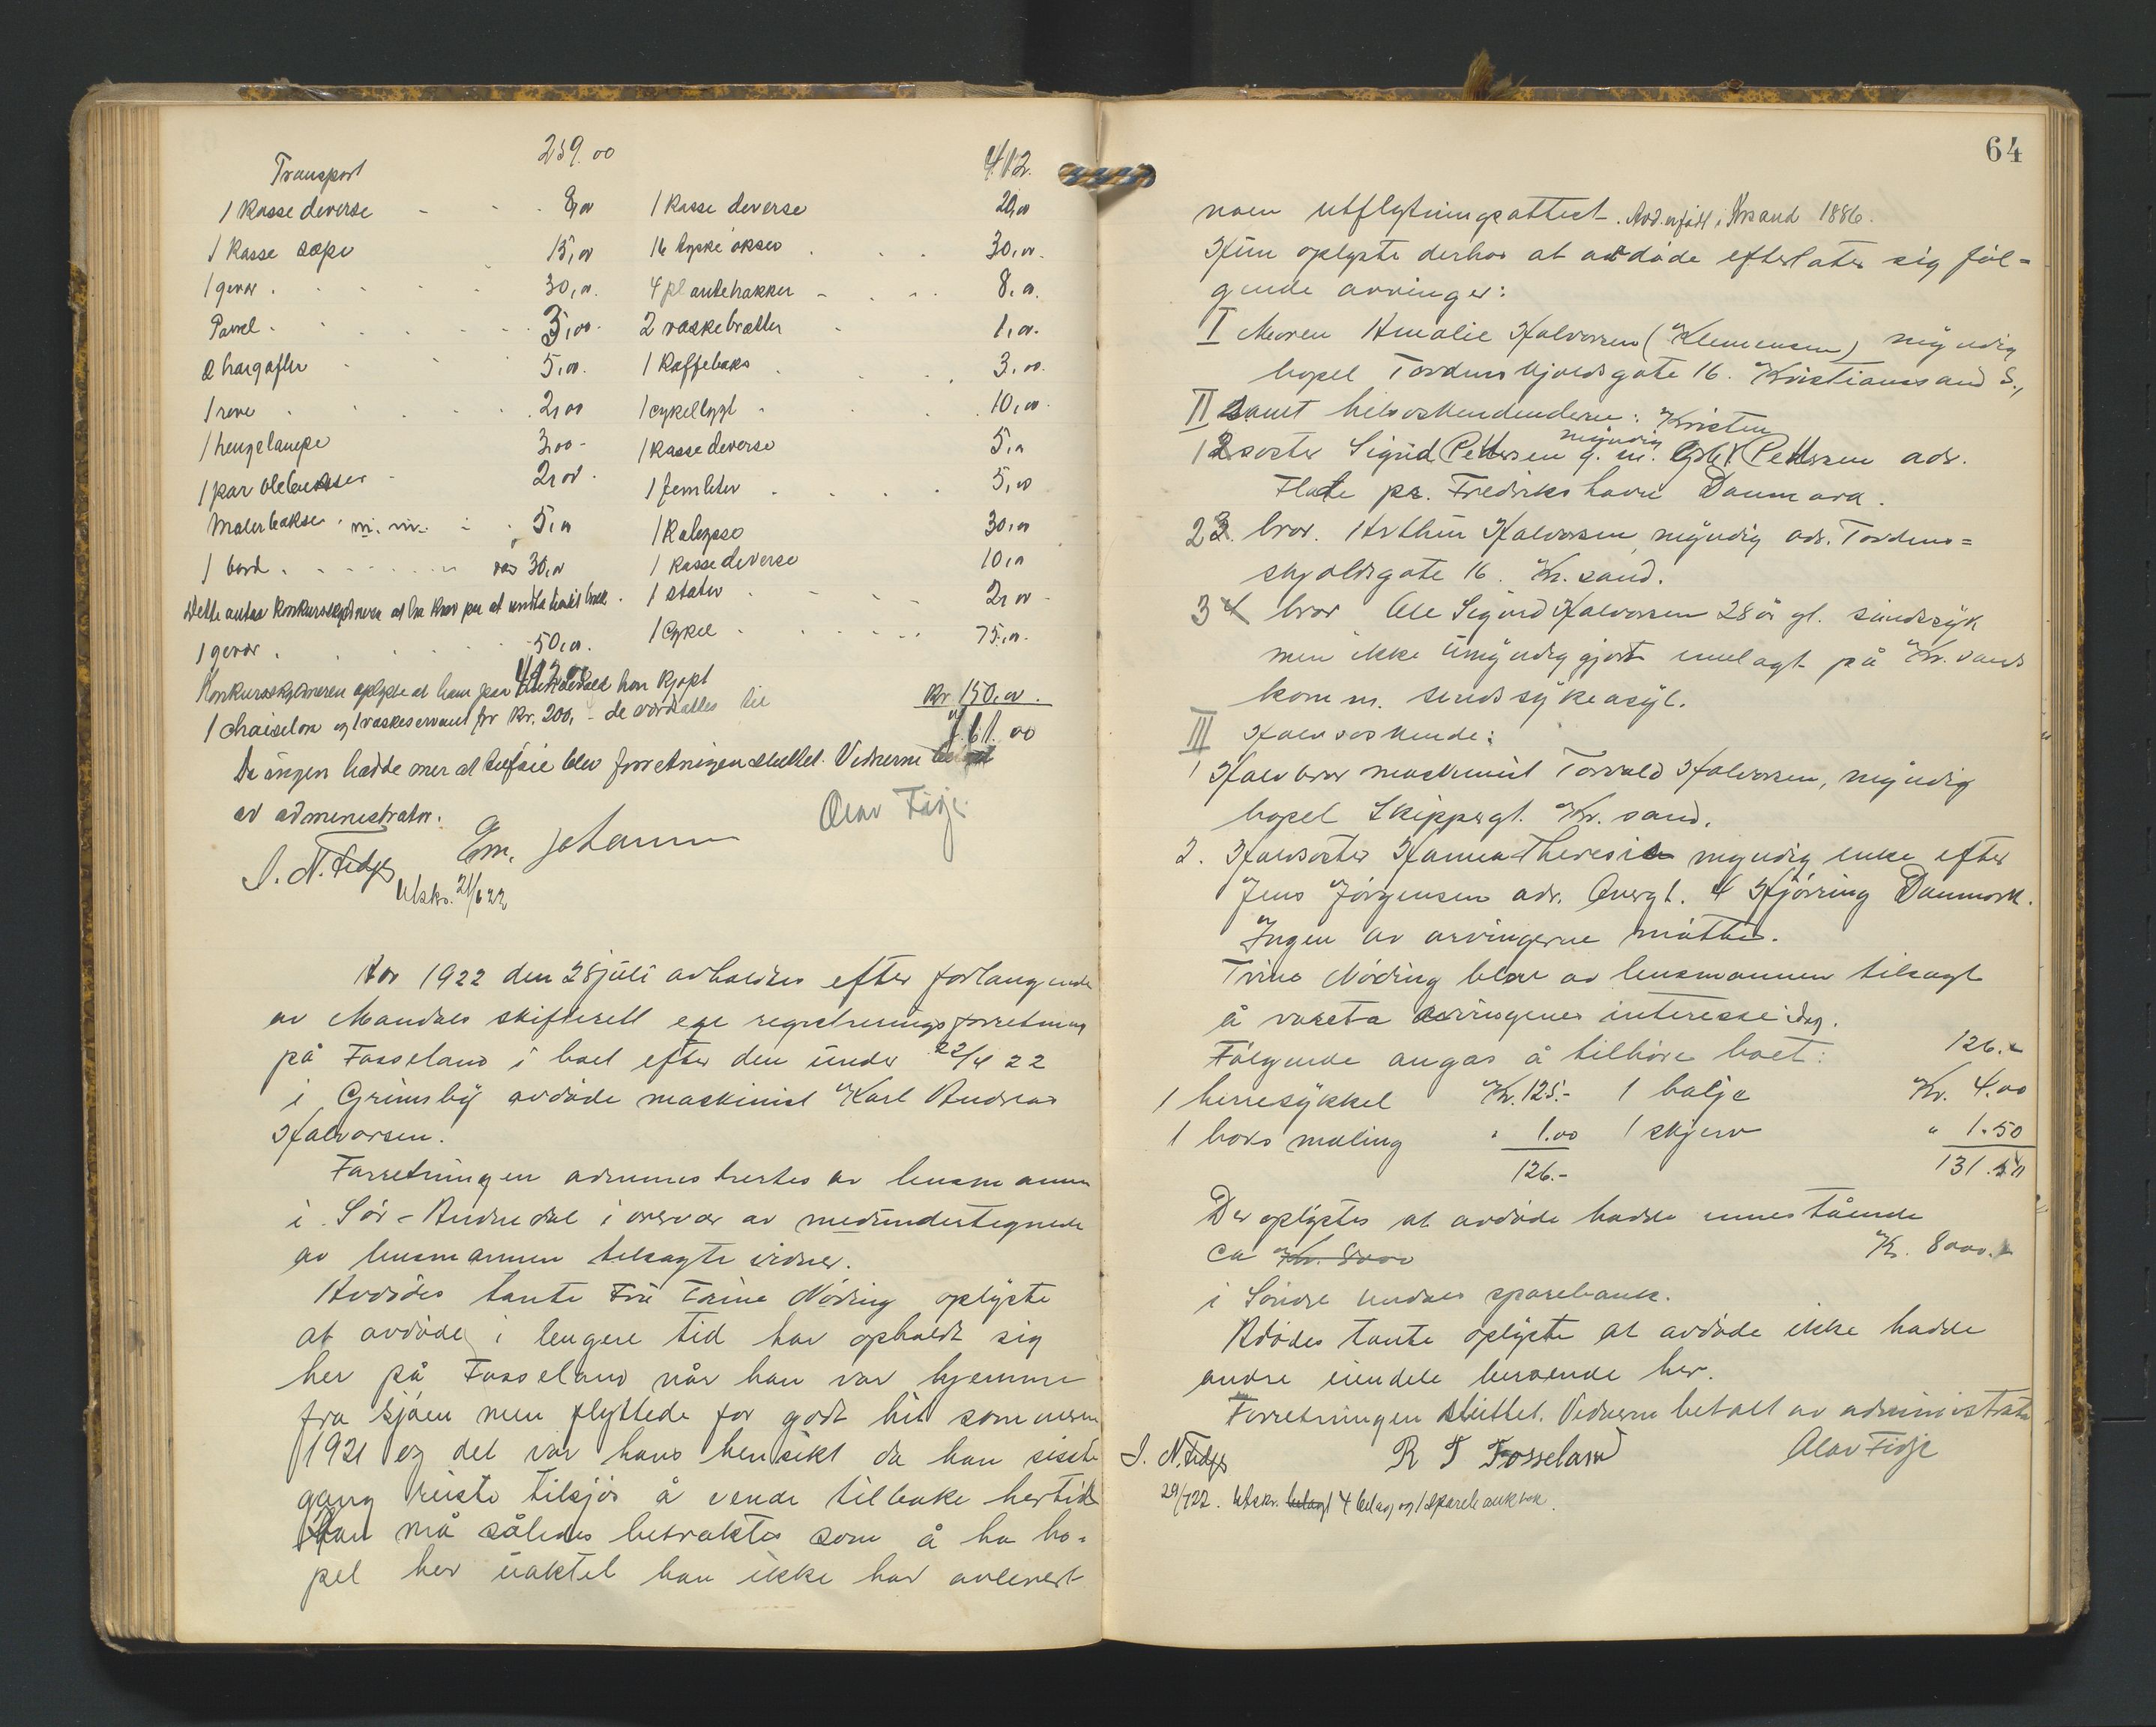 Transport 259.00 412.
1 kasse deverse - - 8,00 1 kasse deverse 20,00
1 kasse sæpe - 15,00 16 tyske økser . . . 30,00.
1 gevær . . . . . 30,00. 4 plantehakker - . . . 8,00.
Parrel . . . . . 5,00. 2 vaskebrætter - 1,00.
2 høigafler - . 5,00. 1 Kaffeboks . . 3,00.
1 reve . . . . . 2,00 1 cykellygt . . . 10,00.
1 hengelampe 3,00 - 1 kasse deverse 5,00
1 par olebukser - 2,00. 1 femliter . . . . 5,00
Malerbukse . m. m. - . 5,00 1 Kalosso 30,00
1 bord . - - - - - 30,00 1 kasse deverse 10,00
Dette antas konkursskyldneren at ha krav paa at undta 1 stativ - - . 2,00 -
1 gevær . . . . 50,00. 1 Cykel . . . . . 75,00.
412.00
Konkursskyldneren oplyste at han paa har kjøpt
1 chaiselon og 1 vaskeservant for kr. 200,- de værdsattes til kr 150,00.
761.00
Da ingen hadde mer at tilføie blev forretningen sluttet. Vidnerne betalt
av administrator.
J. N. Fidje Em. Johann Olav Fidje.
Utskr. 21/6 22
Aar 1922 den 28 juli avholdtes efter forlangende
av Mandals skifterett ege registreringsforretning
på Fosseland i boet efter den under 22/4 22
i Grimsbÿ avdøde maskinist Karl Andreas
Halvorsen.
Forretningen administrertes av lensmannen
i Sør-Audnedal i overvær av medundertegnede
av lensmannen tilsagte vidner.
Avdødes tante Frü Trine Nøding oplyste
at avdøde i lengere tid har opholdt sig
her på Fosseland når han var hjemme
fra sjøen men flyttede for godt hit sommeren
1921 og det var hans hensikt da han siste
gang reiste tilsjøs å vende tilbake hertil
Han må således betraktes som å ha bo-
pel her üaktet han ikke har avlevert
64
noen utflytningsattest. Avd. er født i Krsand 1886.
Hun oplyste derhos at avdøde efterlater sig føl=
gende arvinger:
I Moren Amalie Halvorsen (Klemensen) mÿndig
bopel Tordenskjoldsgate 16. Kristianssand S.,
II samt helsøskendenderne: Kristen
1 søster Sigrid Pettersen mÿndig g. m. Pettersen adr.
Flade pr. Fredrikshavn Danmark.
2 bror. Arthur Halvorsen, mÿndig adr. Tordens=
skjoldsgate 16. Kr. sand.
3 bror Ole Sigurd Halvorsen 28 år gl. sindssÿk
men ikke ümÿndiggjort innlagt på Kr. sands
komm. sindssÿkeasÿl.
III Halvsøskende:
1 Halvbror maskinist Torvald Halvorsen, mÿndig
bopel Skippergt. Kr. sand.
2. Halvsøster Hanna Theresie mÿndig enke efter
Jens Jørgensen adr. Overgt. 4 Hjørring Danmark.
Ingen av arvingerne møtte.
Trine Nøding blev av lensmannen tilsagt
å vareta arvingenes interesse idag.
Følgende angas å tilhøre boet: 126.-
1 herresÿkkel Kr. 125.- 1 balje Kr. 4.00
1 boks maling " 1.00 1 skjerv " 1.50
126.- 131.50
Der oplÿstes at avdøde hadde innestående
ca Kr. 8000 Kr. 8000.-
i Søndre Undals sparebank.
Adødes tante oplÿste at avdøde ikke hadde
andre eiendele beroende her.
Forretningen sluttet. Vidnerne betalt av administrator
J. N. Fidje R T Fosseland Olav Fidje
29/7 22. Utskr. bilagt 4 bilag og 1 sparebankbok.